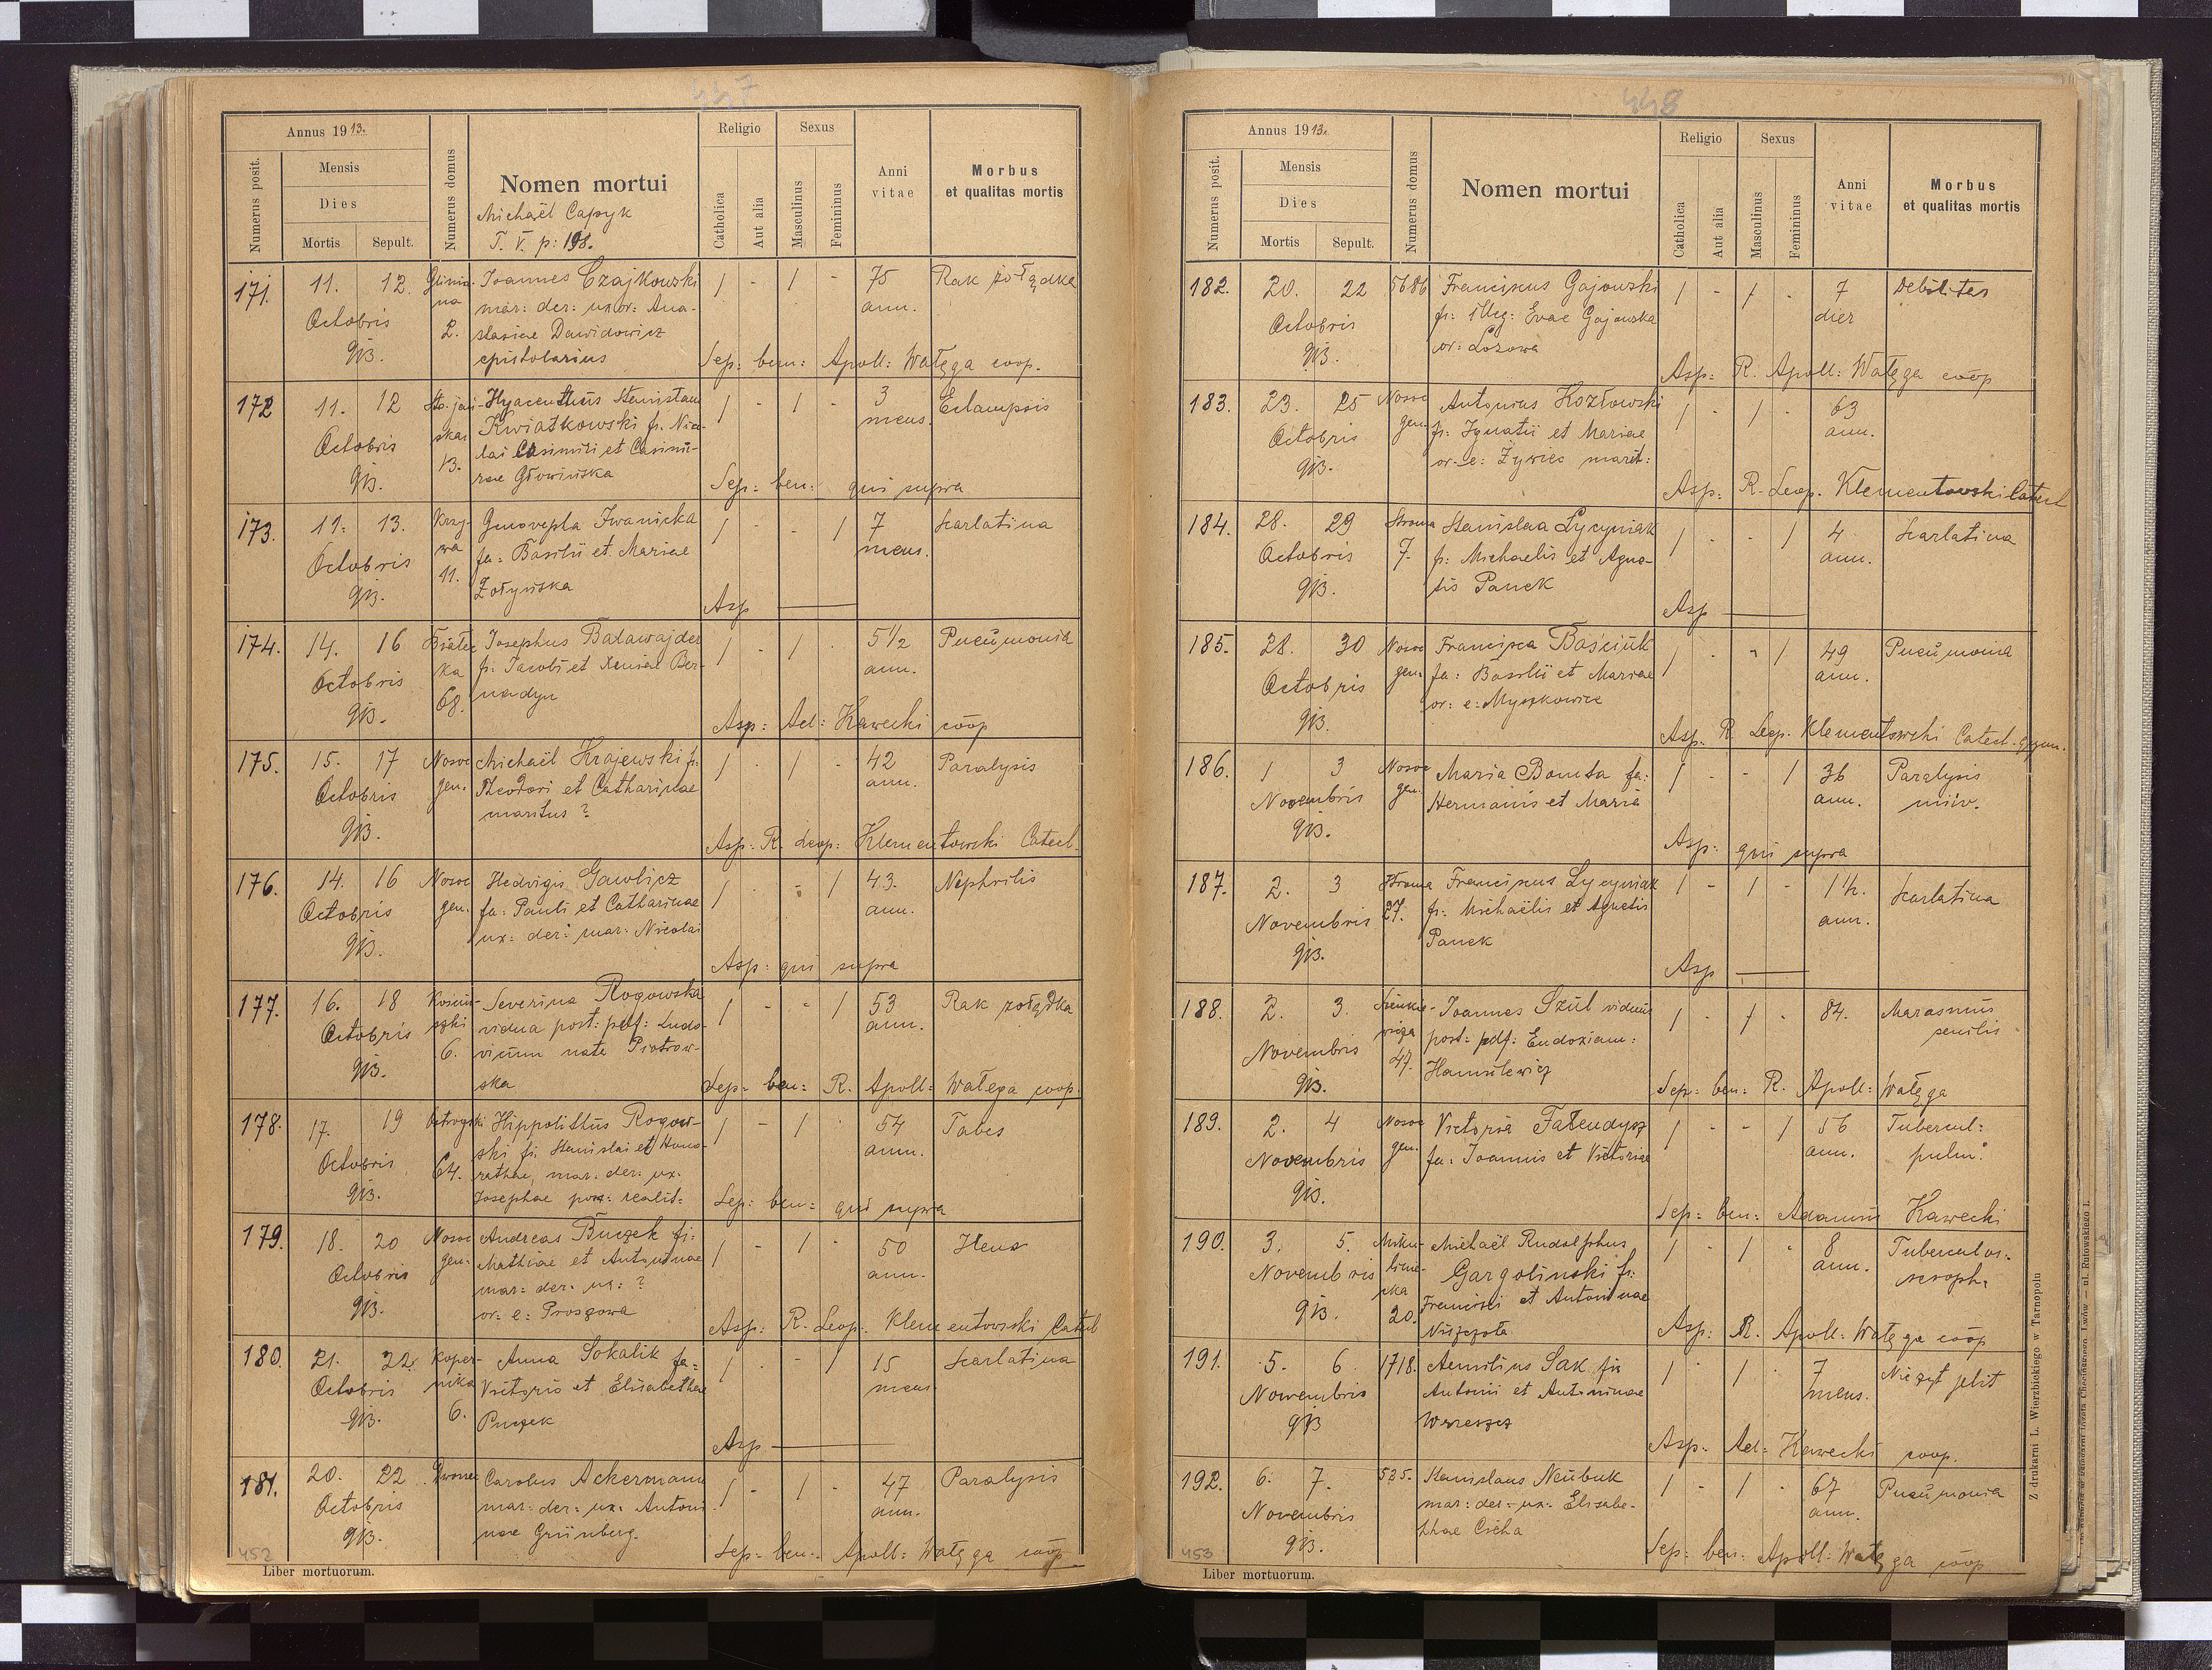 447
Annus 1913.
Numerus posit.
Mensis
Dies
Mortis
Sepult.
Numerus domus
Nomen mortui
Michaël Capyk
T. V. p: 198.
Religio
Catholica
Aut alia
Sexus
Masculinus
Femininus
Anni
vitae
Morbus
et qualitas mortis
171. 11. 12. Glinia- Joannes Czajkowski 1 - 1 - 75 Rak żołądka
na mar: der: uxor: Ana- ann.
Octobris 2. stasiae Dawidowicz
913. epistolarius Sep: ben: Apoll: Wałęga coop.
172 11. 12 Hyacenthus Stanislaus 1 - 1 - 3 Eclampsis
Octobris ska Kwiatkowski fi. Nico- mens.
13. lai Casimiri et Casimi-
913. rae Głowińska Sep: ben: qui supra
173. 11. 13. Krzy- Genovepha Iwanicka 1 - - 1 7 Scarlatina
Octobris wa fa: Basilii et Mariae mens.
913. 11. Żołyńska Asp
174. 14. 16 Josephus Baławajder 1 - 1 - 5 1/2 Pneumonia
Octobris ka fi: Jacobi et Xeniae Ber- ann.
913. 68. nadyn Asp: Ad: Kawecki coop
175. 15. 17 Nosoc Michaël Krajewski fi. 1 - 1 - 42 Paralysis
Octobris gen. Theodori et Catharinae ann.
913. maritus ? Asp: R. Leop: Klementowski Catech.
176. 14. 16 Nosoc Hedvigis Gawlicz 1 - - 1 43. Nephritis
Octobris gen. fa: Pauli et Catharinae ann.
913. ux: der: mar: Nicolai Asp: qui supra
177. 16. 18 Kościu- Severina Rogowska 1 - - 1 53 Rak żołądka
Octobris szki vidua post: pdf: Ludo- ann.
6. vicum nata Piotrow-
913. ska Sep: ben: R. Apoll: Wałęga coop.
178. 17. 19 Ostrogski Hippolittus Rogow- 1 - 1 - 54 Tabes
Octobris 64. ski fi. Stanislai et Hono- ann.
913. rathae, mar: der: ux:
Josephae poss: realit: Sep: ben: qui supra
179. 18. 20 Nosoc Andreas Buczek fi: 1 - 1 - 50 Ileus
Octobris gen. Mathiae et Antoninae ann.
913. mar: der: ux: ?
or: e: Proszowa Asp: R. Leop. Klementowski Catech
180. 21. 22. Koper- Anna Sokalik fa: 1 - - 1 15 Scarlatina
Octobris nika Victoris et Elisabethae mens
913. 6. Puczek Asp
181. 20. 22 Dworzec Carolus Ackermann 1 - 1 - 47 Paralysis
Octobris mar: der: ux: Antoni- ann.
913. nae Grünberg. Sep: ben: Apoll: Wałęga coop
452
Liber mortuorum.
448
Annus 1913.
Numerus posit.
Mensis
Dies
Mortis
Sepult.
Numerus domus
Nomen mortui
Religio
Catholica
Aut alia
Sexus
Masculinus
Femininus
Anni
vitae
Morbus
et qualitas mortis
182. 20. 22 5686 Franciscus Gajowski 1 - 1 - 7 Debilitas
Octobris fi: illeg: Evae Gajowska dier
913. or: Lozowa Asp: R. Apoll: Wałęga coop
183. 23. 25 Nosoc Antonius Kozłowski 1 - 1 - 63
Octobris gen. fi: Ignatii et Mariae ann.
913. or: e: Żywiec marit: Asp: R. Leop. Klementowski Catech
184. 28. 29 Stroma Stanislaa Łycyniak 1 - - 1 4 Scarlatina
Octobris 7. fi: Michaelis et Agne- ann.
913. tis Panek Asp
185. 28. 30 Nosoc Francisca Baściuk 1 - - 1 49 Pneumonia
Octobris gen. fa: Basilii et Mariae ann.
913. or: e: Myszkowice Asp. R. Leop. Klementowski Catech. gymn.
186. 1 3 Nosoc Maria Bomta fa: 1 - - 1 36 Paralysis
Novembris gen. Hermanis et Maria ann.
913. Asp: qui supra
187. 2. 3 Stroma Franciscus Łycyniak 1 - 1 - 1 1/2. Scarlatina
Novembris 27. fi: Michaëlis et Agnetis ann.
913. Panek Asp
188. 2. 3. Sienkie- Joannes Szul viduus 1 - 1 - 84. Marasmus
Novembris wicza post: pdf: Eudoxiam: senilis
913. 47. Hanulewicz Sep: ben: R. Apoll: Wałęga
189. 2. 4 Nosoc Victoria Fałendysz 1 - - 1 56 Tubercul:
Novembris gen. fa: Joannis et Victoriae ann. pulm:
913. Sep: ben: Adamus Kawecki
190. 3. 5. Miku- Michaël Rudolphus 1 - 1 - 8 Tuberculos.
Novembris liniec- Gargolinski fi: ann. scroph.
913. ka Francisci et Antoninae
20. Niszczota Asp: R. Apoll: Wałęga coop
191. 5. 6 1718. Aemilius Sak fi: 1 1 7 Nieżyt jelit
Novembris Antonii et Antoninae mens.
913 Wrzeszcz Asp. Ad: Kawecki coop.
192. 6. 7. 525. Stanislaus Neubuk 1 - 1 - 67 Pneumonia
Novembris mar: der: ux: Elisabe- ann.
913. thae Cicha Sep: ben: Apoll: Wałęga coop
453
Liber mortuorum.
Z drukarni L. Wierzbickiego w Tarnopolu